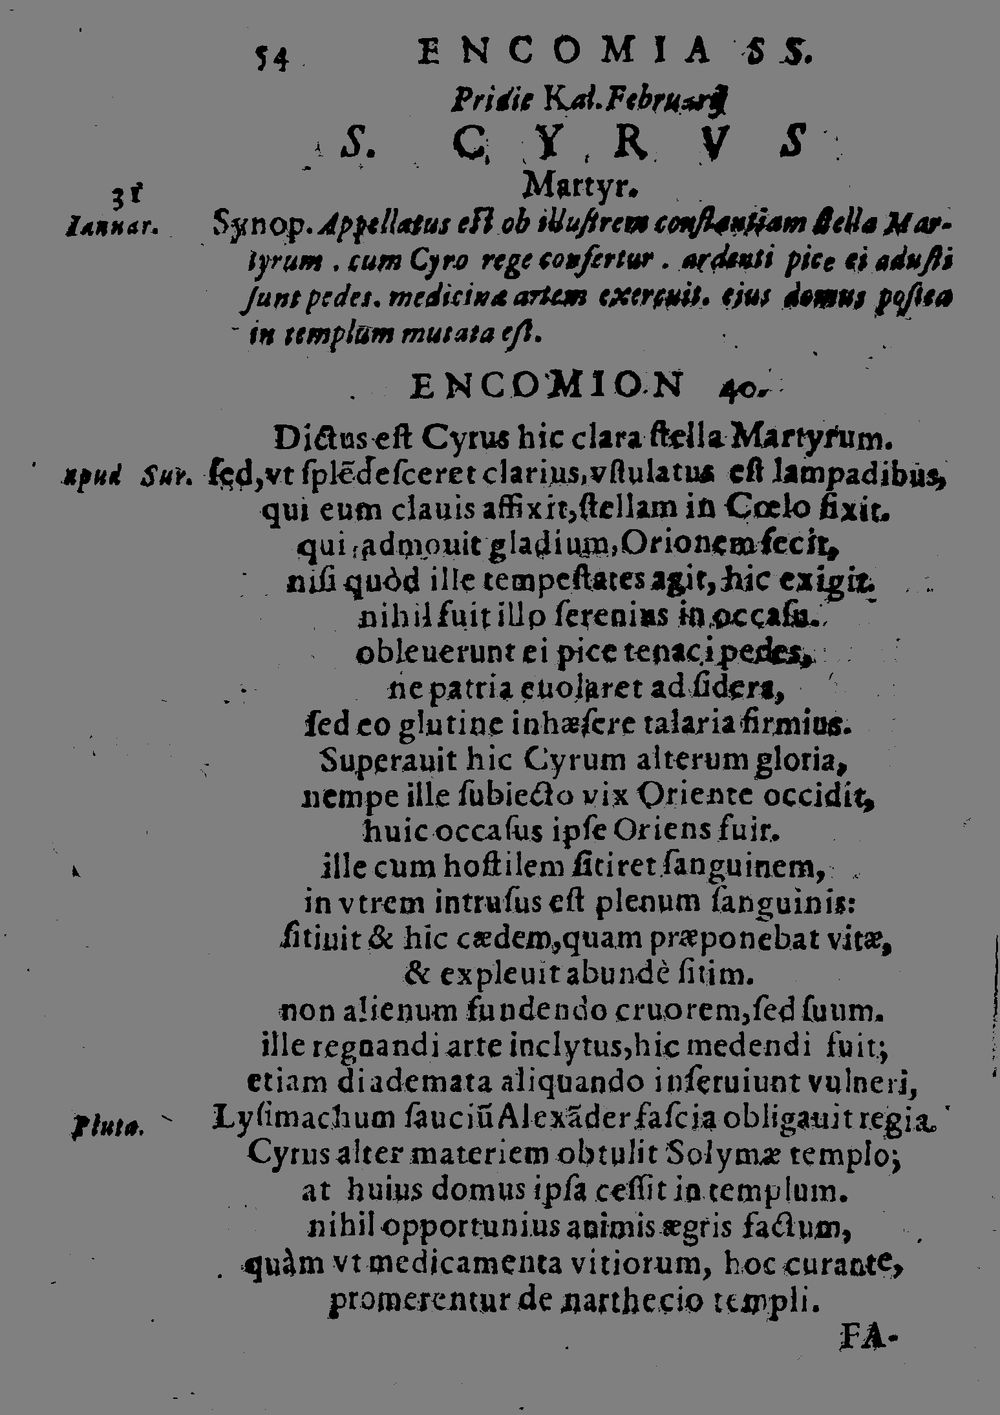 54 ENCOMIA SS.
Pridie Kal. Februarij
S. CYRVS
Martyr.
31
Iannar.
Synop. Appellatus eſt ob illuſtrem conſtantiam ſtella Mar-
tyrum. cum Cyro rege confertur. ardenti pice ei aduſti
ſunt pedes. medicinæ artem exercuit. ejus domus poſtea
in templum mutata eſt.
ENCOMION 40.
Dictus eſt Cyrus hic clara ſtella Martyrum.
apud Sur. ſed, vt ſplēdeſceret clarius, vſtulatus eſt lampadibus,
qui eum clauis affixit, ſtellam in Cœlo fixit.
qui admouit gladium, Orionem fecit,
niſi quòd ille tempeſtates agit, hic exigit.
nihil fuit illo ſerenius in occaſu.
obleuerunt ei pice tenaci pedes,
ne patria euolaret ad ſidera,
ſed eo glutine inhæſere talaria firmius.
Superauit hic Cyrum alterum gloria,
nempe ille ſubiecto vix Oriente occidit,
huic occaſus ipſe Oriens fuit.
ille cum hoſtilem ſitiret ſanguinem,
in vtrem intruſus eſt plenum ſanguinis:
ſitiuit & hic cædem, quam præponebat vitæ,
& expleuit abundè ſitim.
non alienum fundendo cruorem, ſed ſuum.
ille regnandi arte inclytus, hic medendi fuit;
etiam diademata aliquando inſeruiunt vulneri,
Pluta. Lyſimachum ſauciū Alexāder faſcia obligauit regia.
Cyrus alter materiem obtulit Solymæ templo;
at huius domus ipſa ceſſit in templum.
nihil opportunius animis ægris factum,
quàm vt medicamenta vitiorum, hoc curante,
promerentur de narthecio templi.
FA-